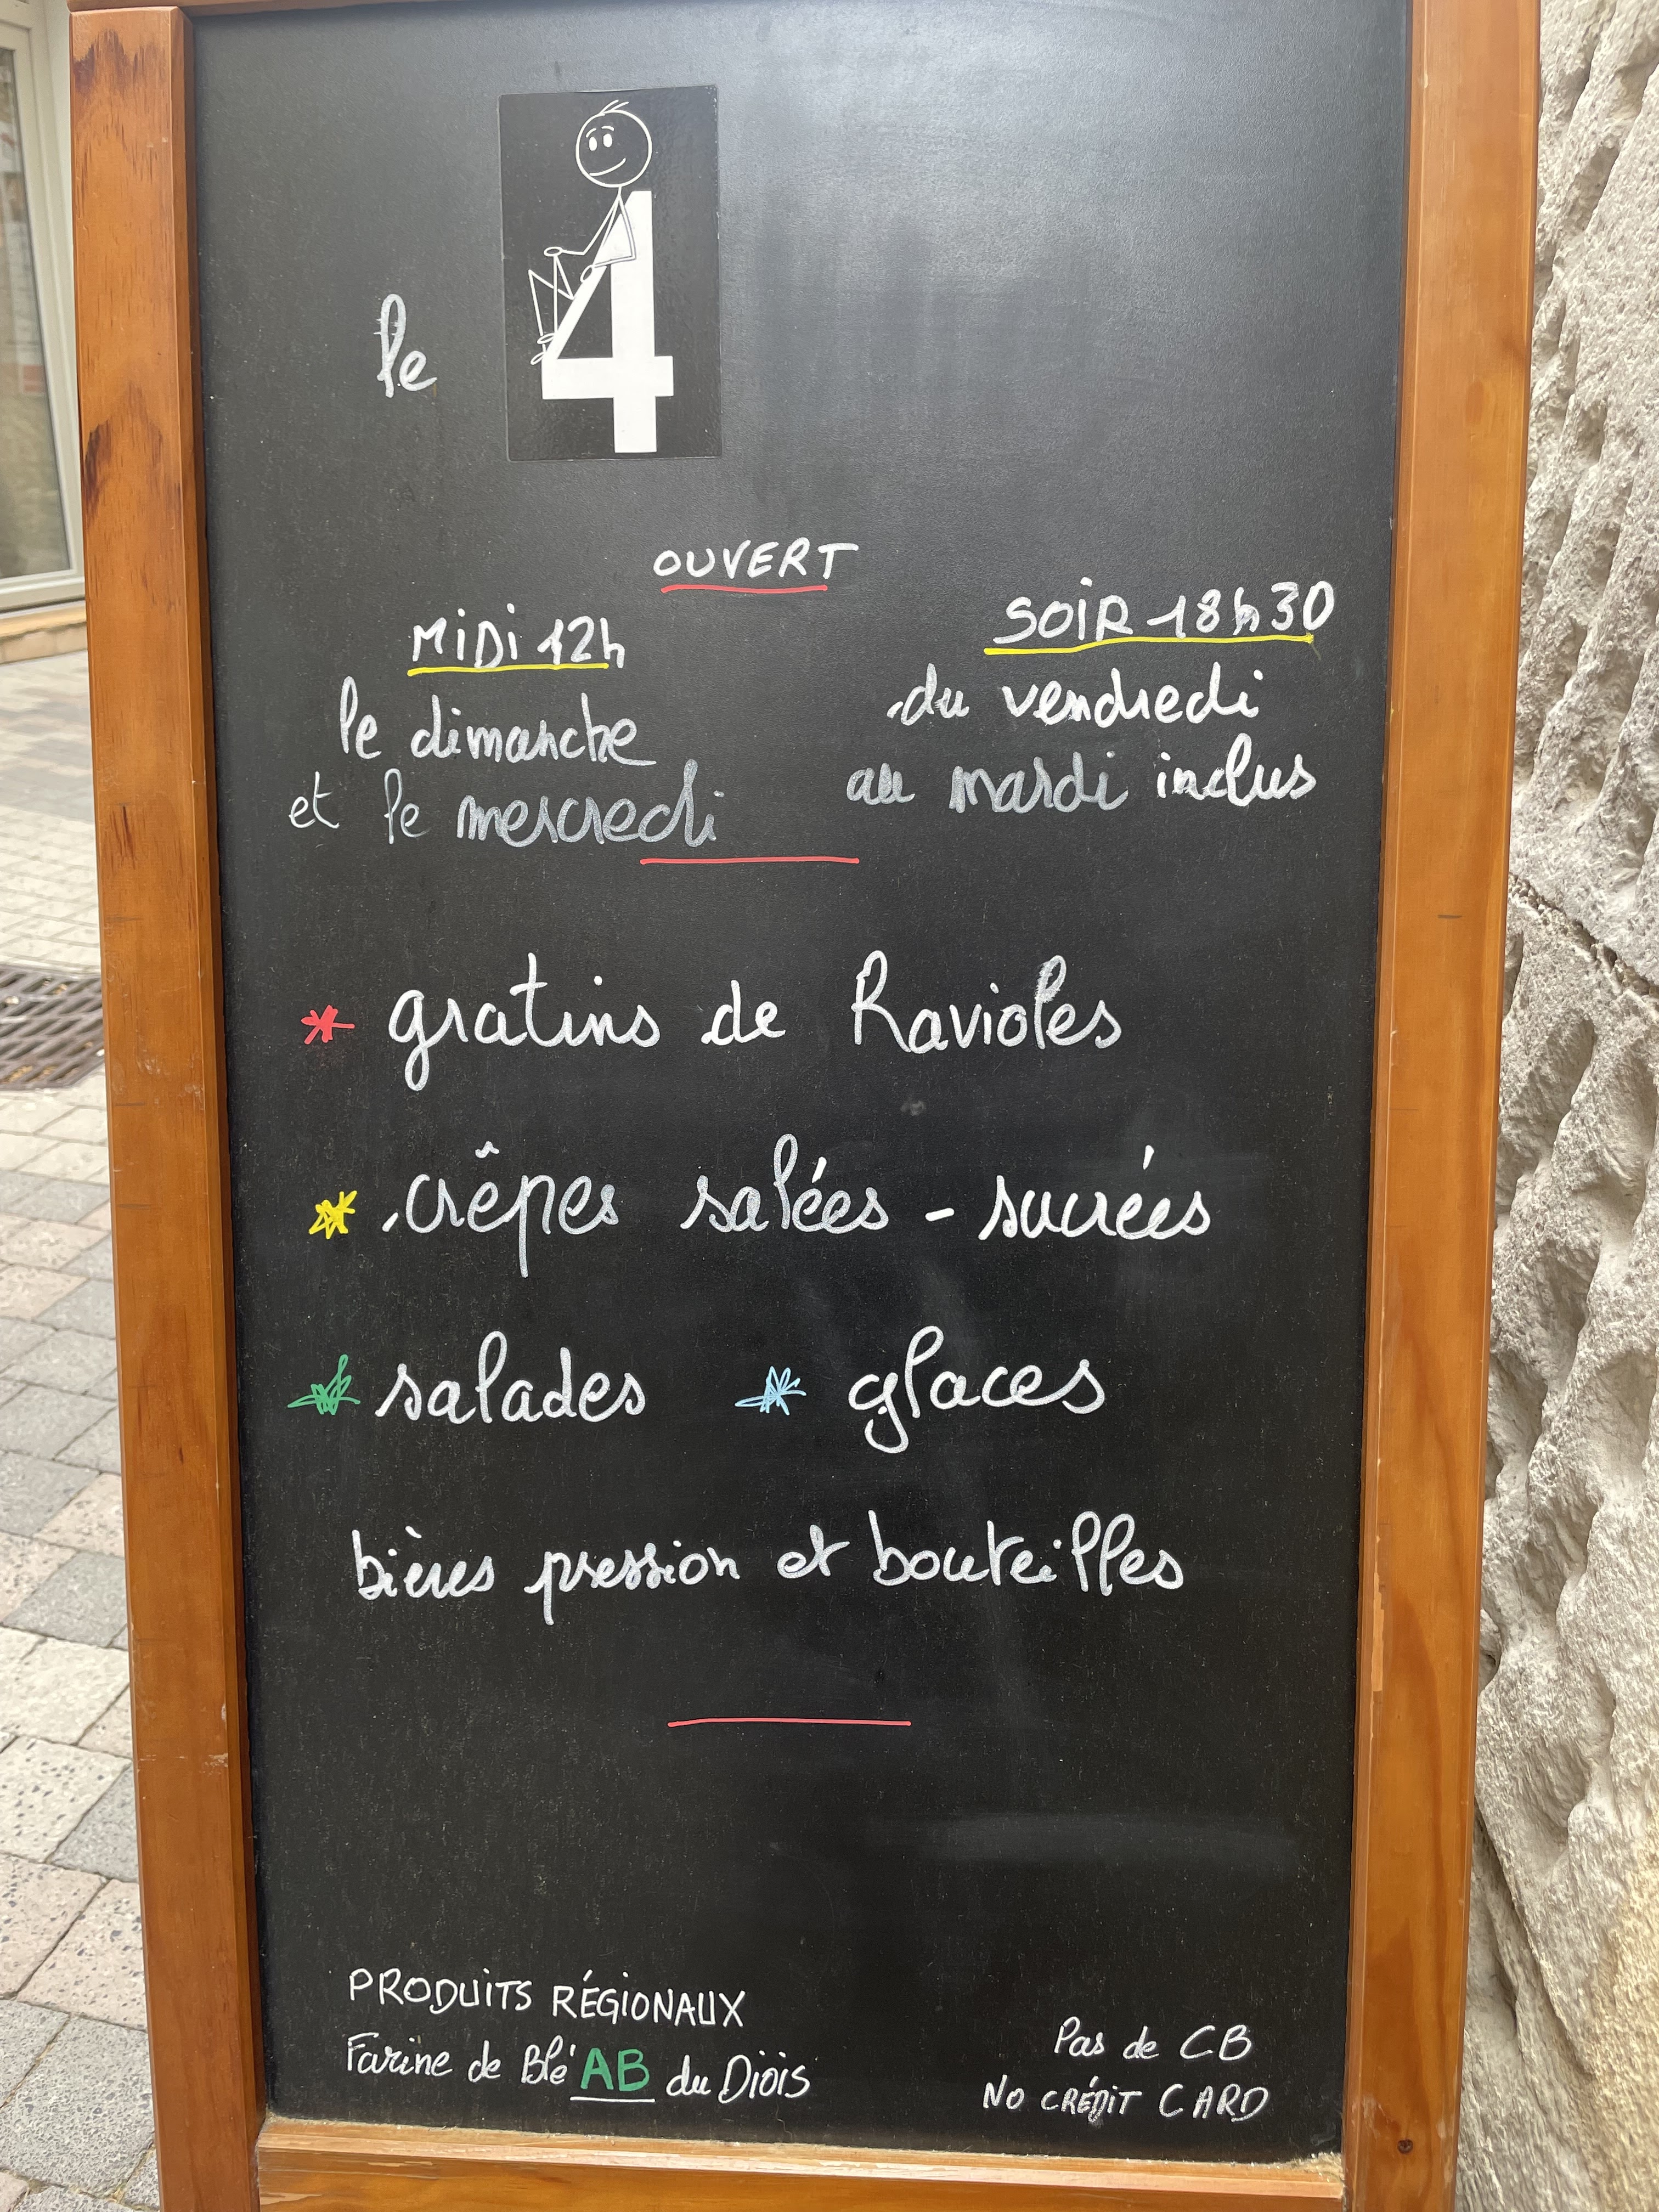 le 4
OUVERT
MiDi 12h
le dimanche
et le mercredi
SOiR 18h30
du vendredi
au mardi inclus
* gratins de Ravioles
* crêpes salées - sucrées
* salades * glaces
bières pression et bouteilles
PRODUiTS RÉGIONAUX
Farine de Blé AB du Diois
Pas de CB
No CRÉDiT CARD